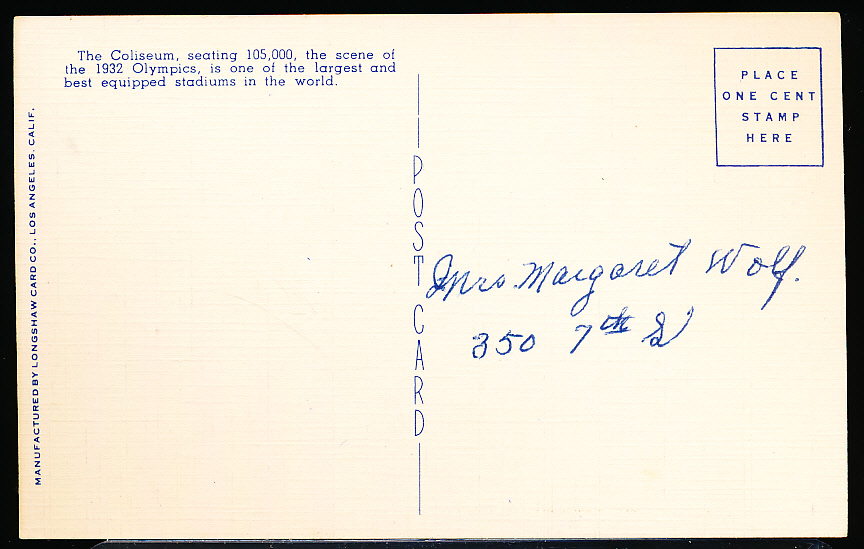 The Coliseum, seating 105,000, the scene of
the 1932 Olympics, is one of the largest and
best equipped stadiums in the world.
MANUFACTURED BY LONGSHAW CARD CO., LOS ANGELES, CALIF.
POST CARD
PLACE
ONE CENT
STAMP
HERE
Mrs. Margaret Wolf.
350 7th St